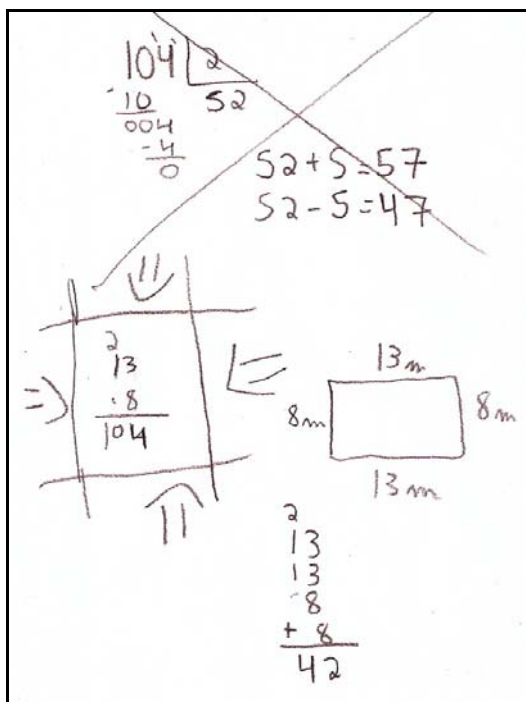 104 2
10 52
004
-4
0
52+5=57
52-5=47
2
13
.8
104
13m
8m 8m
13m
2
13
13
8
+ 8
42